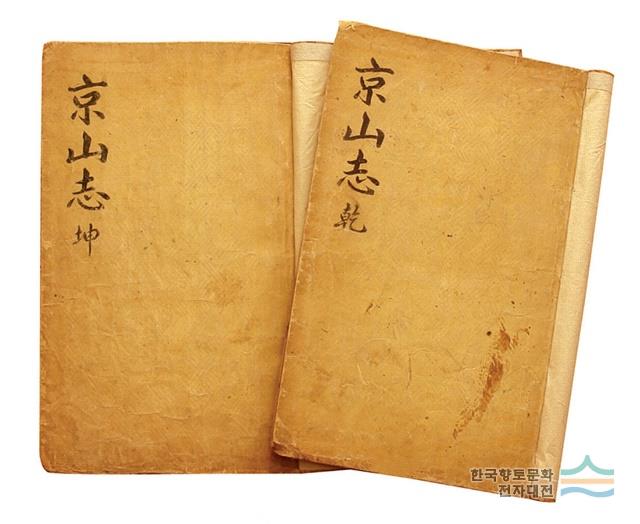 京山志
坤
京山志
乾
한국향토문화
전자대전